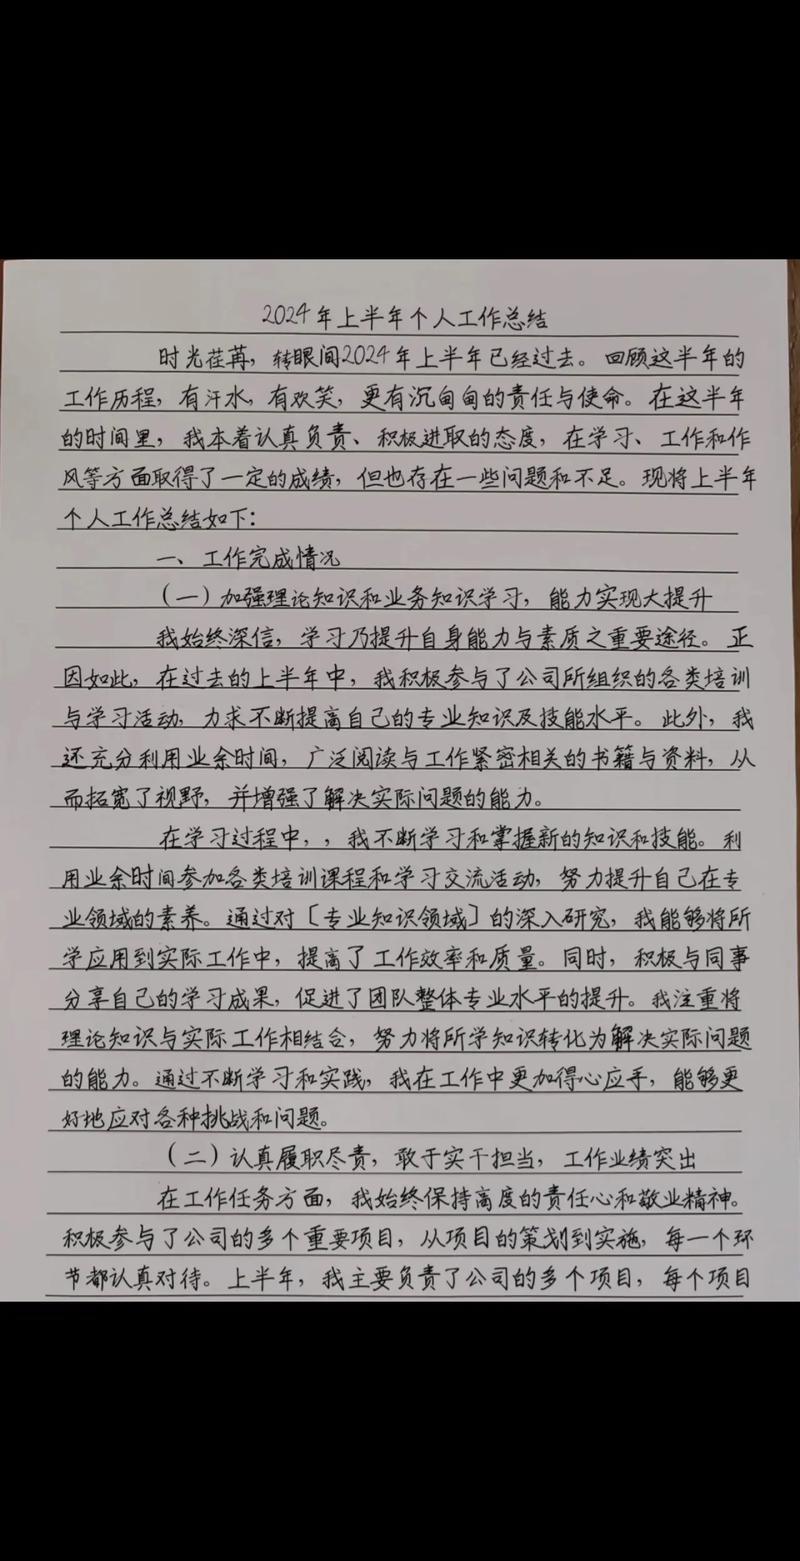 2024年上半年个人工作总结
时光荏苒，转眼间2024年上半年已经过去。回顾这半年的
工作历程，有汗水，有欢笑，更有沉甸甸的责任与使命。在这半年
的时间里，我本着认真负责、积极进取的态度，在学习、工作和作
风等方面取得了一定的成绩，但也存在一些问题和不足。现将上半年
个人工作总结如下：
一、工作完成情况
（一）加强理论知识和业务知识学习，能力实现大提升
我始终深信，学习乃提升自身能力与素质之重要途径。正
因如此，在过去的上半年中，我积极参与了公司所组织的各类培训
与学习活动，力求不断提高自己的专业知识及技能水平。此外，我
还充分利用业余时间，广泛阅读与工作紧密相关的书籍与资料，从
而拓宽了视野，并增强了解决实际问题的能力。
在学习过程中，，我不断学习和掌握新的知识和技能。利
用业余时间参加各类培训课程和学习交流活动，努力提升自己在专
业领域的素养。通过对〔专业知识领域〕的深入研究，我能够将所
学应用到实际工作中，提高了工作效率和质量。同时，积极与同事
分享自己的学习成果，促进了团队整体专业水平的提升。我注重将
理论知识与实际工作相结合，努力将所学知识转化为解决实际问题
的能力。通过不断学习和实践，我在工作中更加得心应手，能够更
好地应对各种挑战和问题。
（二）认真履职尽责，敢于实干担当，工作业绩突出
在工作任务方面，我始终保持高度的责任心和敬业精神。
积极参与了公司的多个重要项目，从项目的策划到实施，每一个环
节都认真对待。上半年，我主要负责了公司的多个项目，每个项目